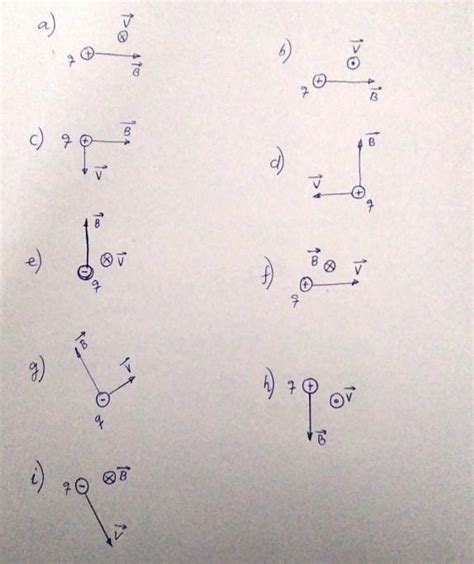 a) q V⃗ B⃗
b) q V⃗ B⃗
c) q B⃗ V⃗
d) V⃗ B⃗ q
e) B⃗ V⃗ q
f) B⃗ V⃗ q
g) B⃗ V⃗ q
h) q V⃗ B⃗
i) q B⃗ V⃗